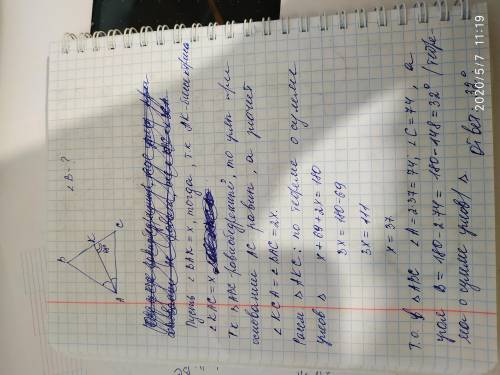 ∠B=?
B
K
69°
A
C
Пусть ∠BAK = x, тогда, т.к AK-биссектриса
∠KAC = x
Т.к △ABC равнобедренный, то углы при
основании AC равны, а значит
∠KCA = ∠BAC = 2x.
Рассм △AKC: по теореме о сумме
углов △
x + 69 + 2x = 180
3x = 180-69
3x = 111
x = 37
Т.о. у △ABC ∠A = 2·37 = 74, ∠C = 74, а
угол B = 180 - 2·74 = 180-148 = 32° (теоре
ма о сумме углов △
Ответ 32°
2020/5/7 11:19